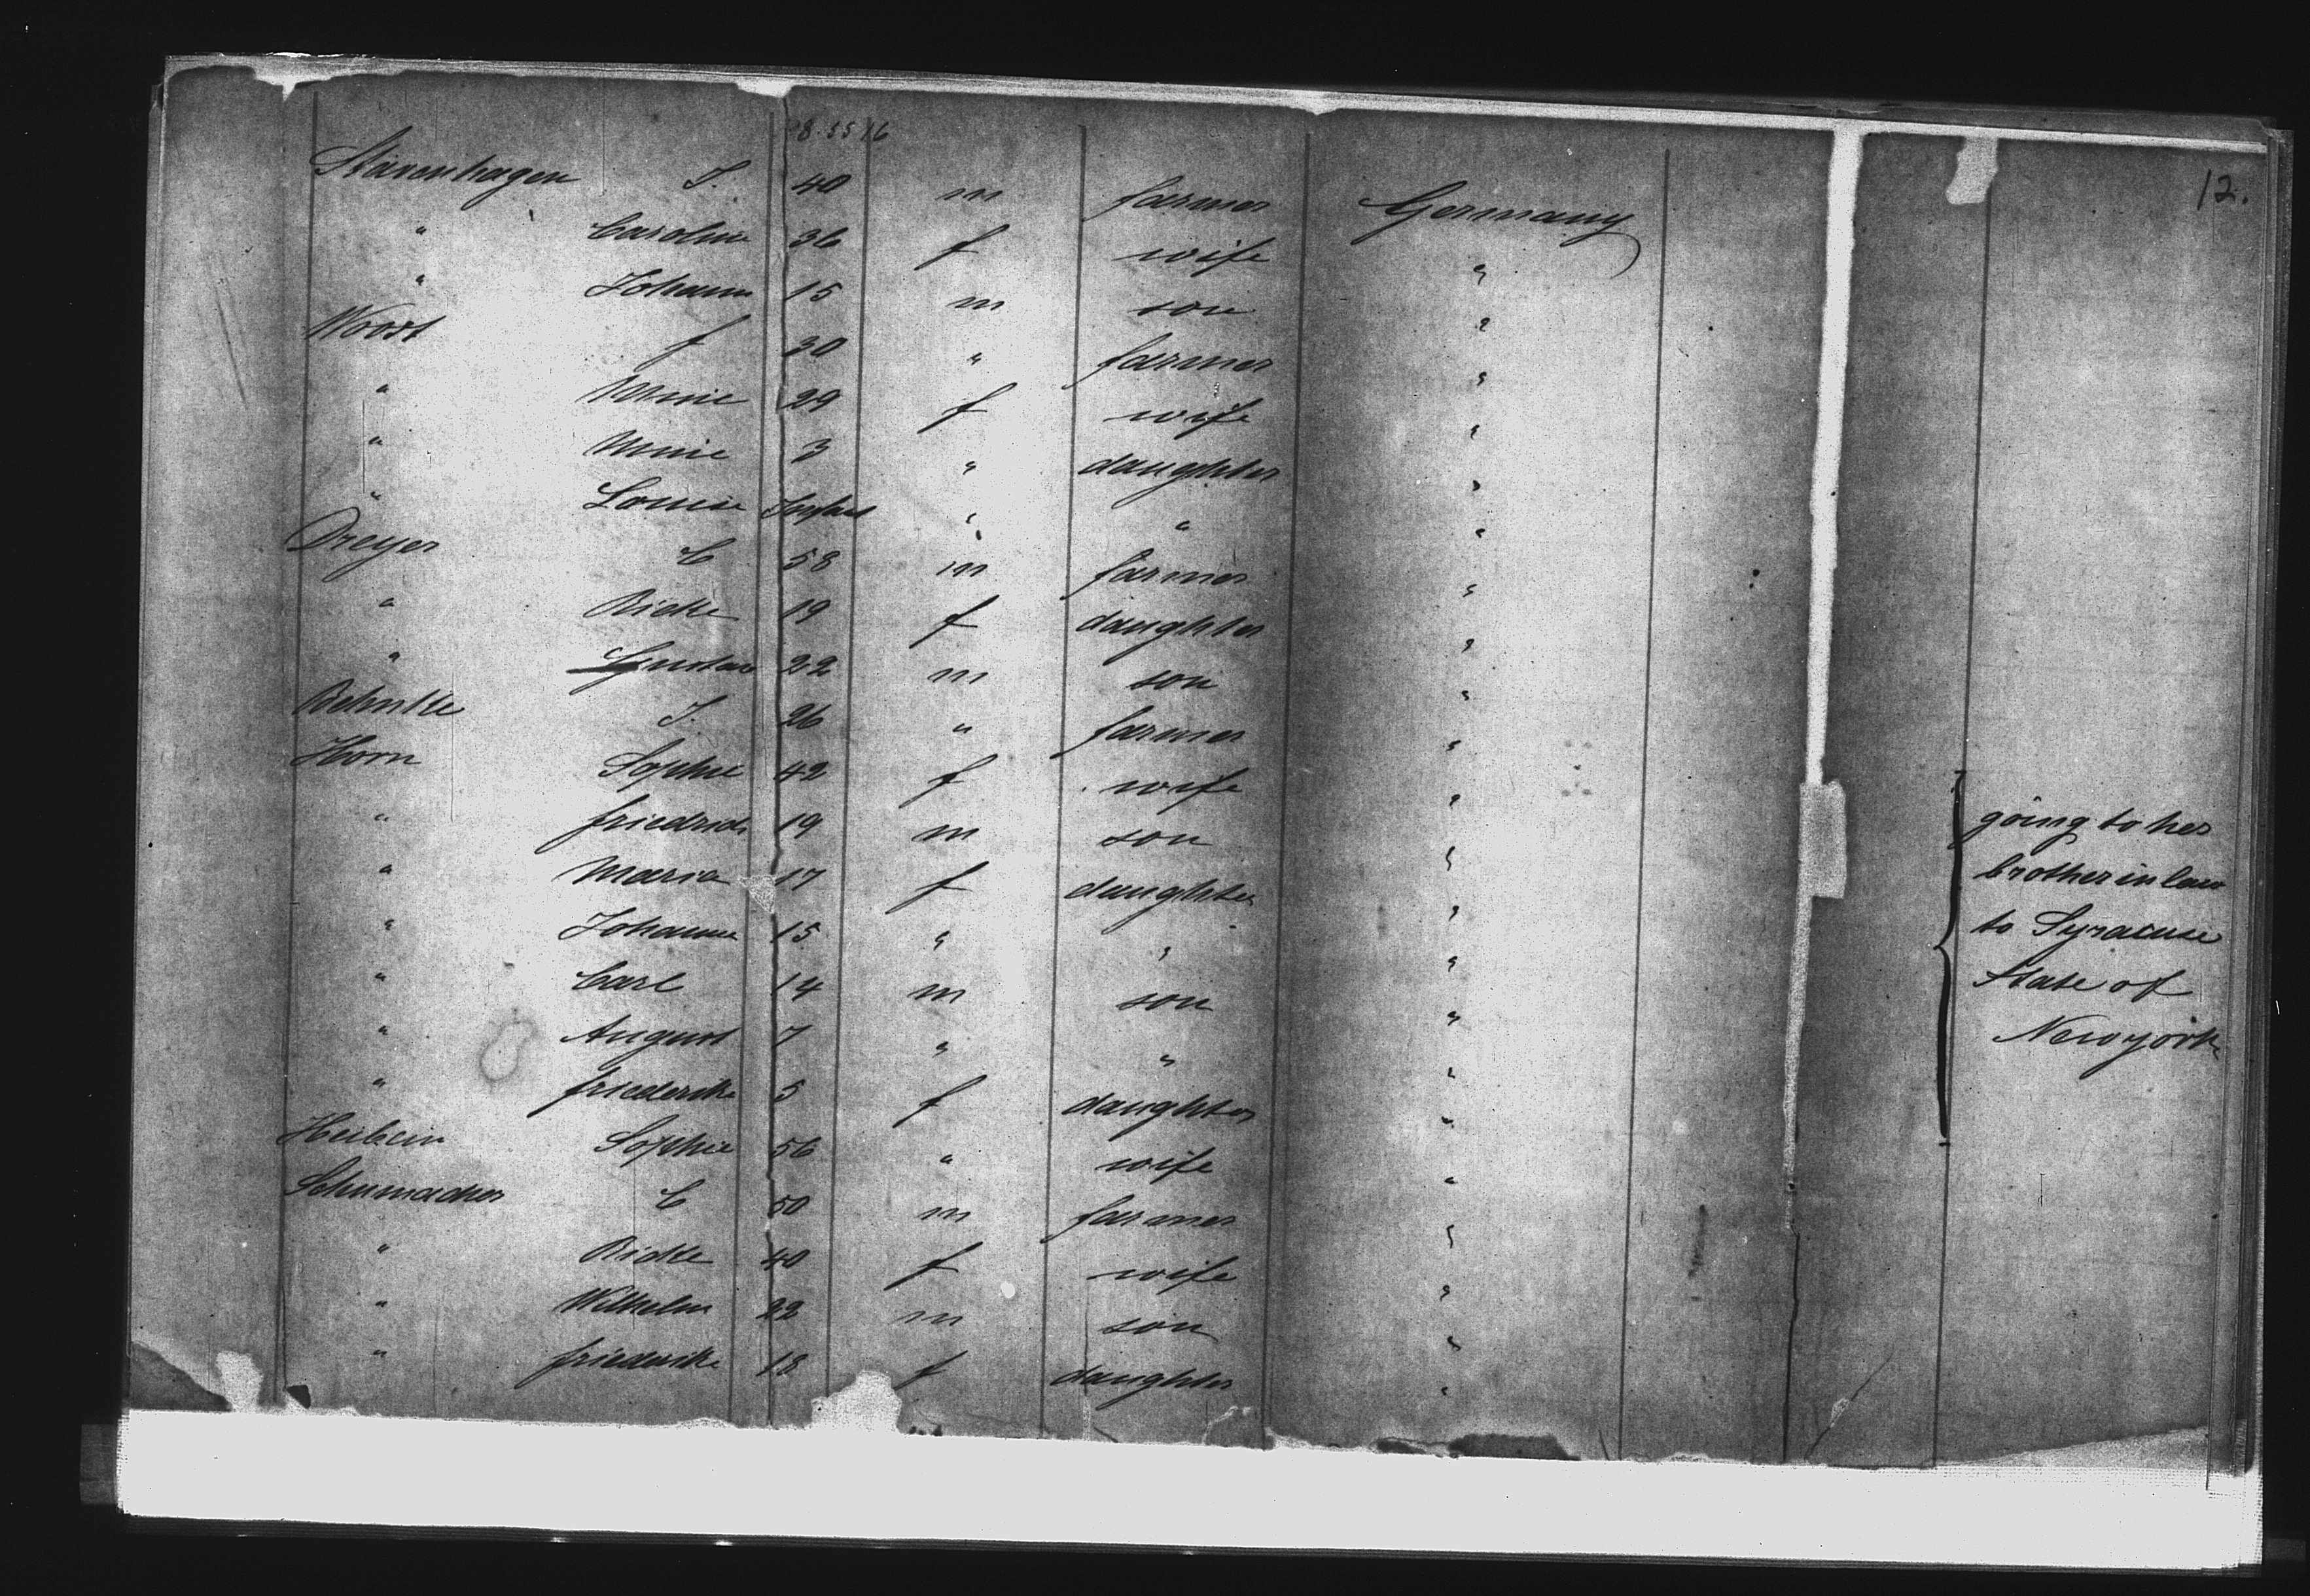 12.
Stävenhagen J. 40 m farmer Germany
" Caroline 36 f wife "
" Johann 15 m son "
Woost f 30 " farmer "
" Minie 29 f wife "
" Minie 3 " daughter "
" Louise Infant " " "
Dreyer C 58 m farmer "
" Rieke 19 f daughter "
" Gustav 22 m son "
Behnke J. 26 " farmer "
Horn Sophie 42 f wife "
" friedrich 19 m son " going to her
" Maria 17 f daughter " brother in law
" Johanna 15 " " " to Syracuse
" Carl 14 m son " State of
" August 7 " " " New york
" friederike 5 f daughter "
Sophie 56 " wife "
Schumacher C 50 m farmer "
" Rieke 40 f wife "
" Wilhelm 22 m son "
" friederike 18 f daughter "